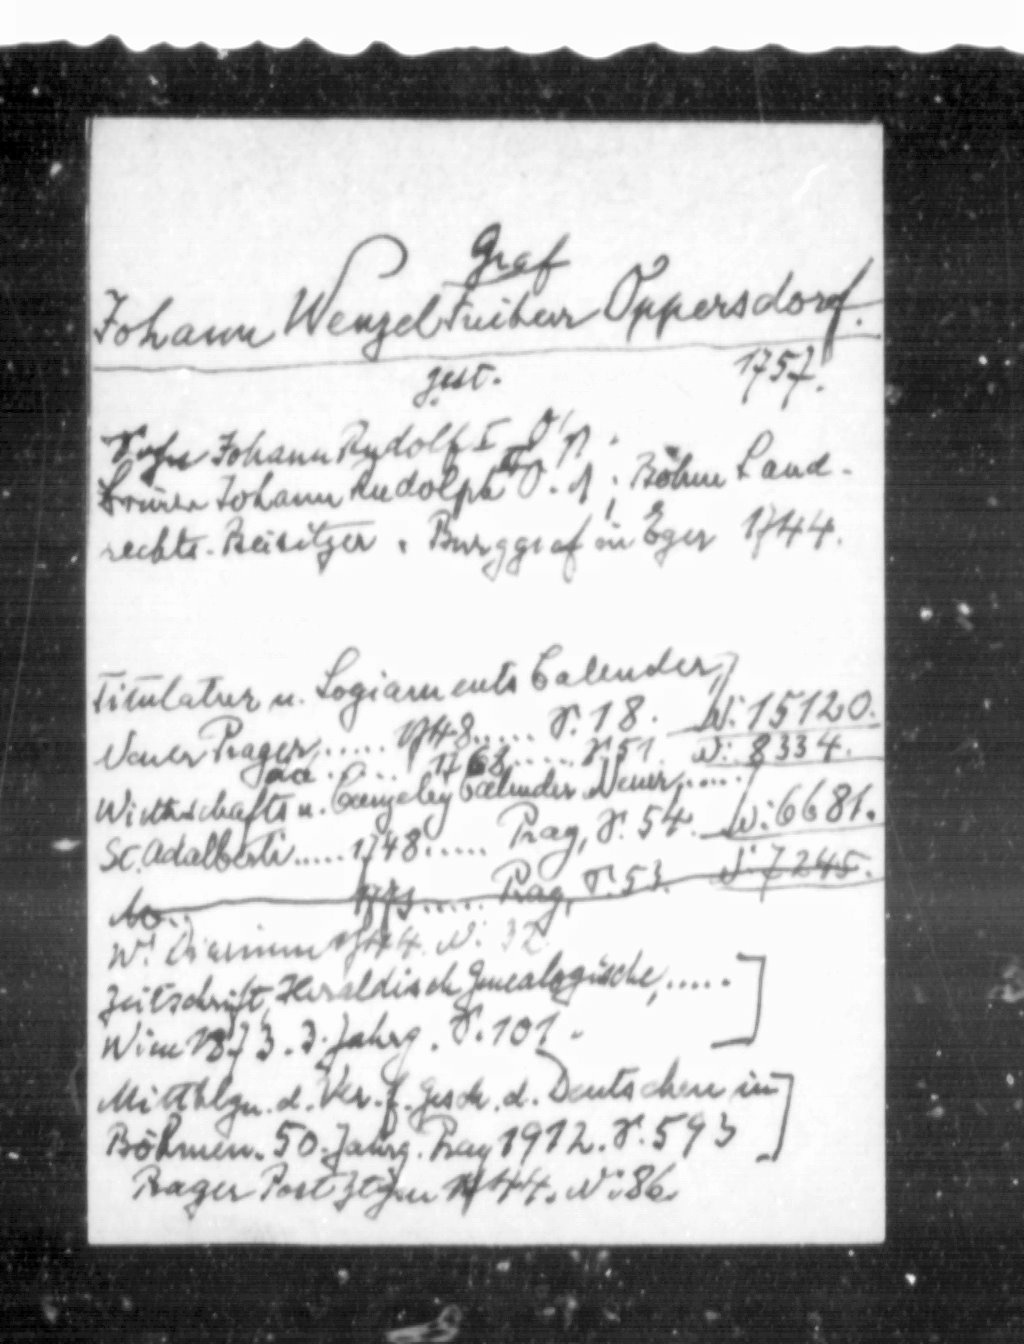 Graf
Johann Wenzel Freiherr Oppersdorf.
gest. 1757.
Sohn Johann Rudolf I O!
Bruder Johann Rudolph O. ; Böhm Land-
rechts-Beisitzer. Burggraf in Eger 1744.
Titulatur u. Logiaments Calender,
Neuer Prager, ..... 1748..... S. 18. N: 15120.
..... 1768 ..... S 51. N: 8334.
Wirthschafts u. Canzeley Calender Neuer, .....
Sc. Adalberti ..... 1748..... Prag, S. 54. N: 6681.
..... Prag, S. 53. N: 7245.
W! Diarium 1744. N: 32
Zeitschrift, Heraldisch Genealogische, .....
Wien 1873. 3. Jahrg. S. 101.
Mitthlgn. d. Ver. f. Gesch. d. Deutschen in
Böhmen. 50. Jahrg. Prag 1912. S. 593
Prager Post Ztgen 1744. N: 86.